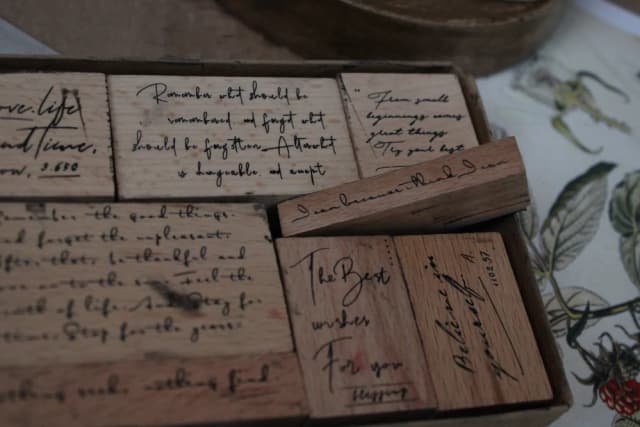 ove.life
nd Time.
ow. 3.650
Remember what should be
remembered and forget what
should be forgotten. Alter what
is changeable, and accept
"From small
beginnings comes
great things
Try your best
I can because I think I can
Remember the good things
and forget the unpleasant.
after that, be thankful and
feel the
of life. And Stay for
time. Stop for the
nothing seek, nothing find.
The Best
wishes
For you
Believe in
yourself. A.
1102.37